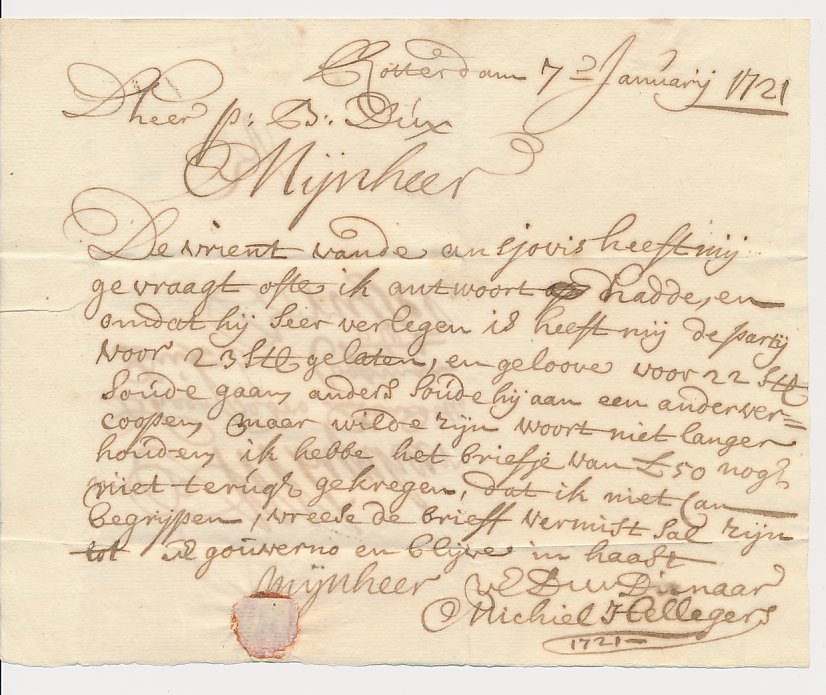 Rotterdam 7 Januarij 1721
Dheer P: B: Dúx
Mijnheer
De vrient vande ansjovis heeft mij
gevraagt ofte ik antwoort hadde, en
omdat hij seer verlegen is heeft mij de partij
voor 23 Stt gelaten, en geloove voor 22 Stt
soúde gaan, anders soúde hij aan een ander ver=
coopen, maar wilde zijn woort niet langer
houden, ik hebbe het briefje van £50 nogh
niet terúgh gekregen, dat ik niet can
begrijpen, vreese de brieff vermist sal zijn
tot gouverno en blijve in haast
Mijnheer UE DW Dienaar
Michiel Hellegers
1721